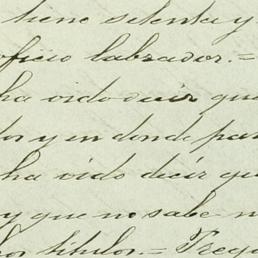 tiene setenta y
oficio labrador. =
ha oido decir que
los y en donde par
ha oido decir qu
y que no sabe n
los títulos. = Preg